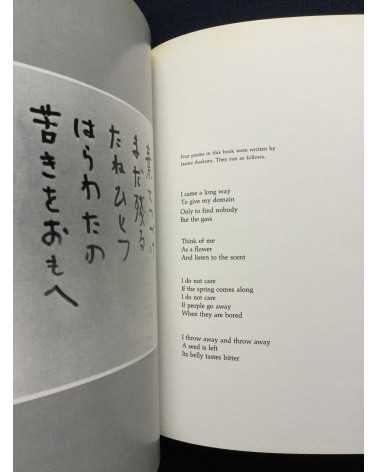 まだ残る
たねひとつ
はらわたの
苦きをおもへ
Four poems in this book were written by
Asakura. They run as follows.
I came a long way
To give my domain
Only to find nobody
But the gass
Think of me
As a flower
And listen to the scent
I do not care
If the spring comes along
I do not care
If people go away
When they are bored
I throw away and throw away
A seed is left
Its belly tastes bitter